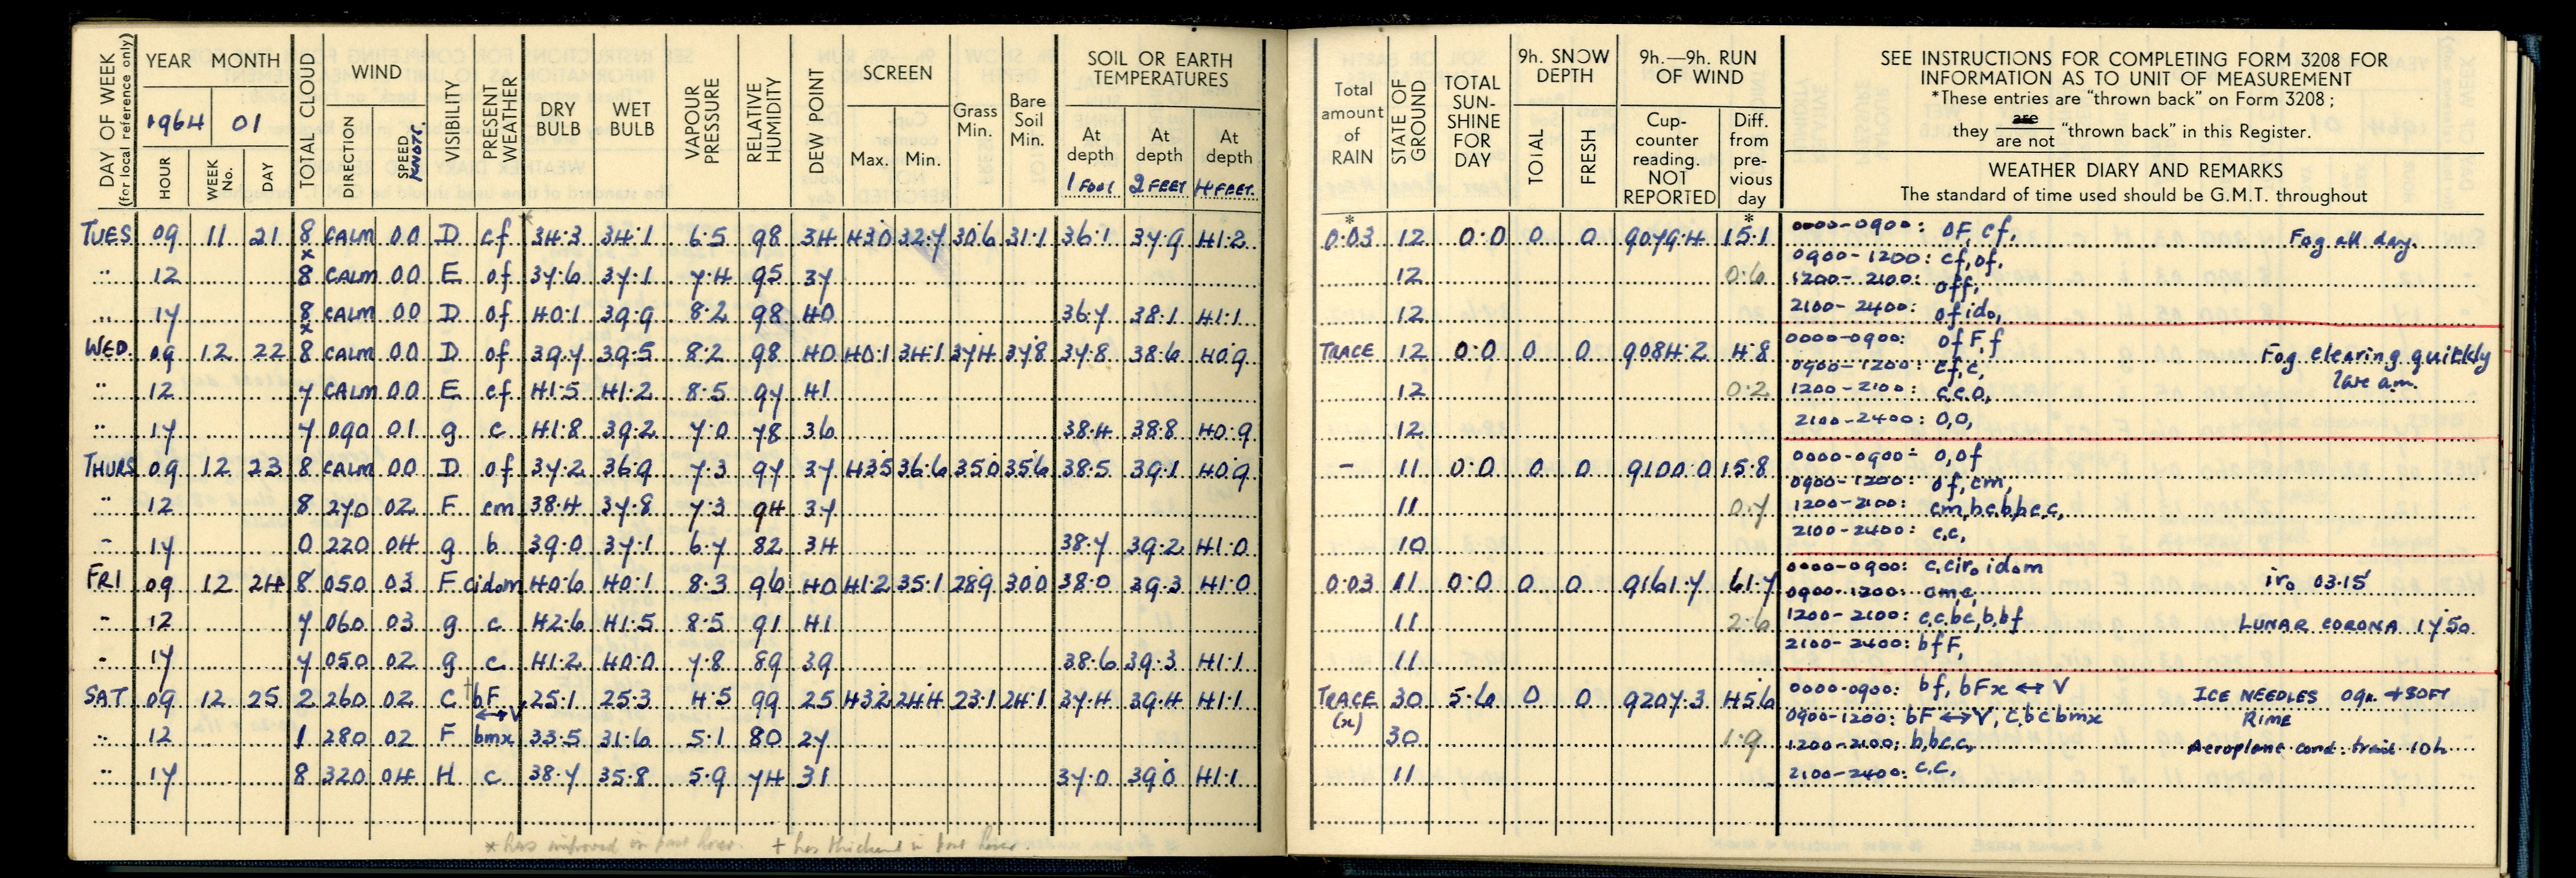 DAY OF WEEK (for local reference only)
YEAR MONTH
1964 01
HOUR WEEK No. DAY
TOTAL CLOUD
WIND
DIRECTION SPEED KNOTS.
VISIBILITY
PRESENT WEATHER
DRY BULB
WET BULB
VAPOUR PRESSURE
RELATIVE HUMIDITY
DEW POINT
SCREEN
Max. Min.
Grass Min.
Bare Soil Min.
SOIL OR EARTH TEMPERATURES
At depth 1 FOOT
At depth 2 FEET
At depth 4 FEET.
TUES 09 11 21 8 CALM 00 D cf 34.3 34.1 6.5 98 34 43.0 32.7 30.6 31.1 36.1 37.9 41.2
" 12 8 CALM 00 E of 37.6 37.1 7.4 95 37
" 17 8 CALM 00 D of 40.1 39.9 8.2 98 40 36.7 38.1 41.1
WED. 09 12 22 8 CALM 00 D of 39.7 39.5 8.2 98 40 40.1 34.1 37.4 37.8 37.8 38.6 40.9
" 12 7 CALM 00 E cf 41.5 41.2 8.5 97 41
" 17 7 090 01 g c 41.8 39.2 7.0 78 36 38.4 38.8 40.9
THURS 09 12 23 8 CALM 00 D of 37.2 36.9 7.3 97 37 43.5 36.6 35.0 35.6 38.5 39.1 40.9
" 12 8 270 02 F cm 38.4 37.8 7.3 94 37
" 17 0 220 04 g b 39.0 37.1 6.7 82 34 38.7 39.2 41.0
FRI 09 12 24 8 050 03 F cidom 40.6 40.1 8.3 96 40 41.2 35.1 28.9 30.0 38.0 39.3 41.0
" 12 7 060 03 g c 42.6 41.5 8.5 91 41
" 17 7 050 02 g c 41.2 40.0 7.8 89 39 38.6 39.3 41.1
SAT 09 12 25 2 260 02 C †bF ↔V 25.1 25.3 4.5 99 25 43.2 24.4 23.1 24.1 37.4 39.4 41.1
" 12 1 280 02 F bmx 33.5 31.6 5.1 80 27
" 17 8 320 04 H c 38.7 35.8 5.9 74 31 37.0 39.0 41.1
* has improved in past hour. † has thickened in past hour
Total amount of RAIN
STATE OF GROUND
TOTAL SUN-SHINE FOR DAY
9h. SNOW DEPTH
TOTAL FRESH
9h.—9h. RUN OF WIND
Cup-counter reading. NOT REPORTED
Diff. from pre-vious day
SEE INSTRUCTIONS FOR COMPLETING FORM 3208 FOR
INFORMATION AS TO UNIT OF MEASUREMENT
*These entries are "thrown back" on Form 3208;
they are/are not "thrown back" in this Register.
WEATHER DIARY AND REMARKS
The standard of time used should be G.M.T. throughout
0.03 12 0.0 0 0 9079.4 15.1 0000-0900: oF, cf, Fog all day.
0900-1200: cf, of,
12 0.6 1200-2100: off,
12 2100-2400: of ido,
TRACE 12 0.0 0 0 9084.2 4.8 0000-0900: of F, f Fog clearing quickly
0900-1200: cf, c, late a.m.
12 0.2 1200-2100: c.c.o,
12 2100-2400: o,o,
- 11 0.0 0 0 9100.0 15.8 0000-0900: o,of
0900-1200: of, cm,
11 0.7 1200-2100: cm,bc,b,bc,c,
10 2100-2400: c,c,
0.03 11 0.0 0 0 9161.7 61.7 0000-0900: c,ciro idom iro 03.15
0900-1200: cmc,
11 2.6 1200-2100: c,c,bc,b,bf LUNAR CORONA 1750
11 2100-2400: bfF,
TRACE (x) 30 5.6 0 0 9207.3 45.6 0000-0900: bf, bFx ↔ V ICE NEEDLES 09h. +80FT
0900-1200: bF ↔ V, C,bc bmx RIME
30 1.9 1200-2100: b,bc.c, Aeroplane cond. trail 10h
11 2100-2400: c.c.